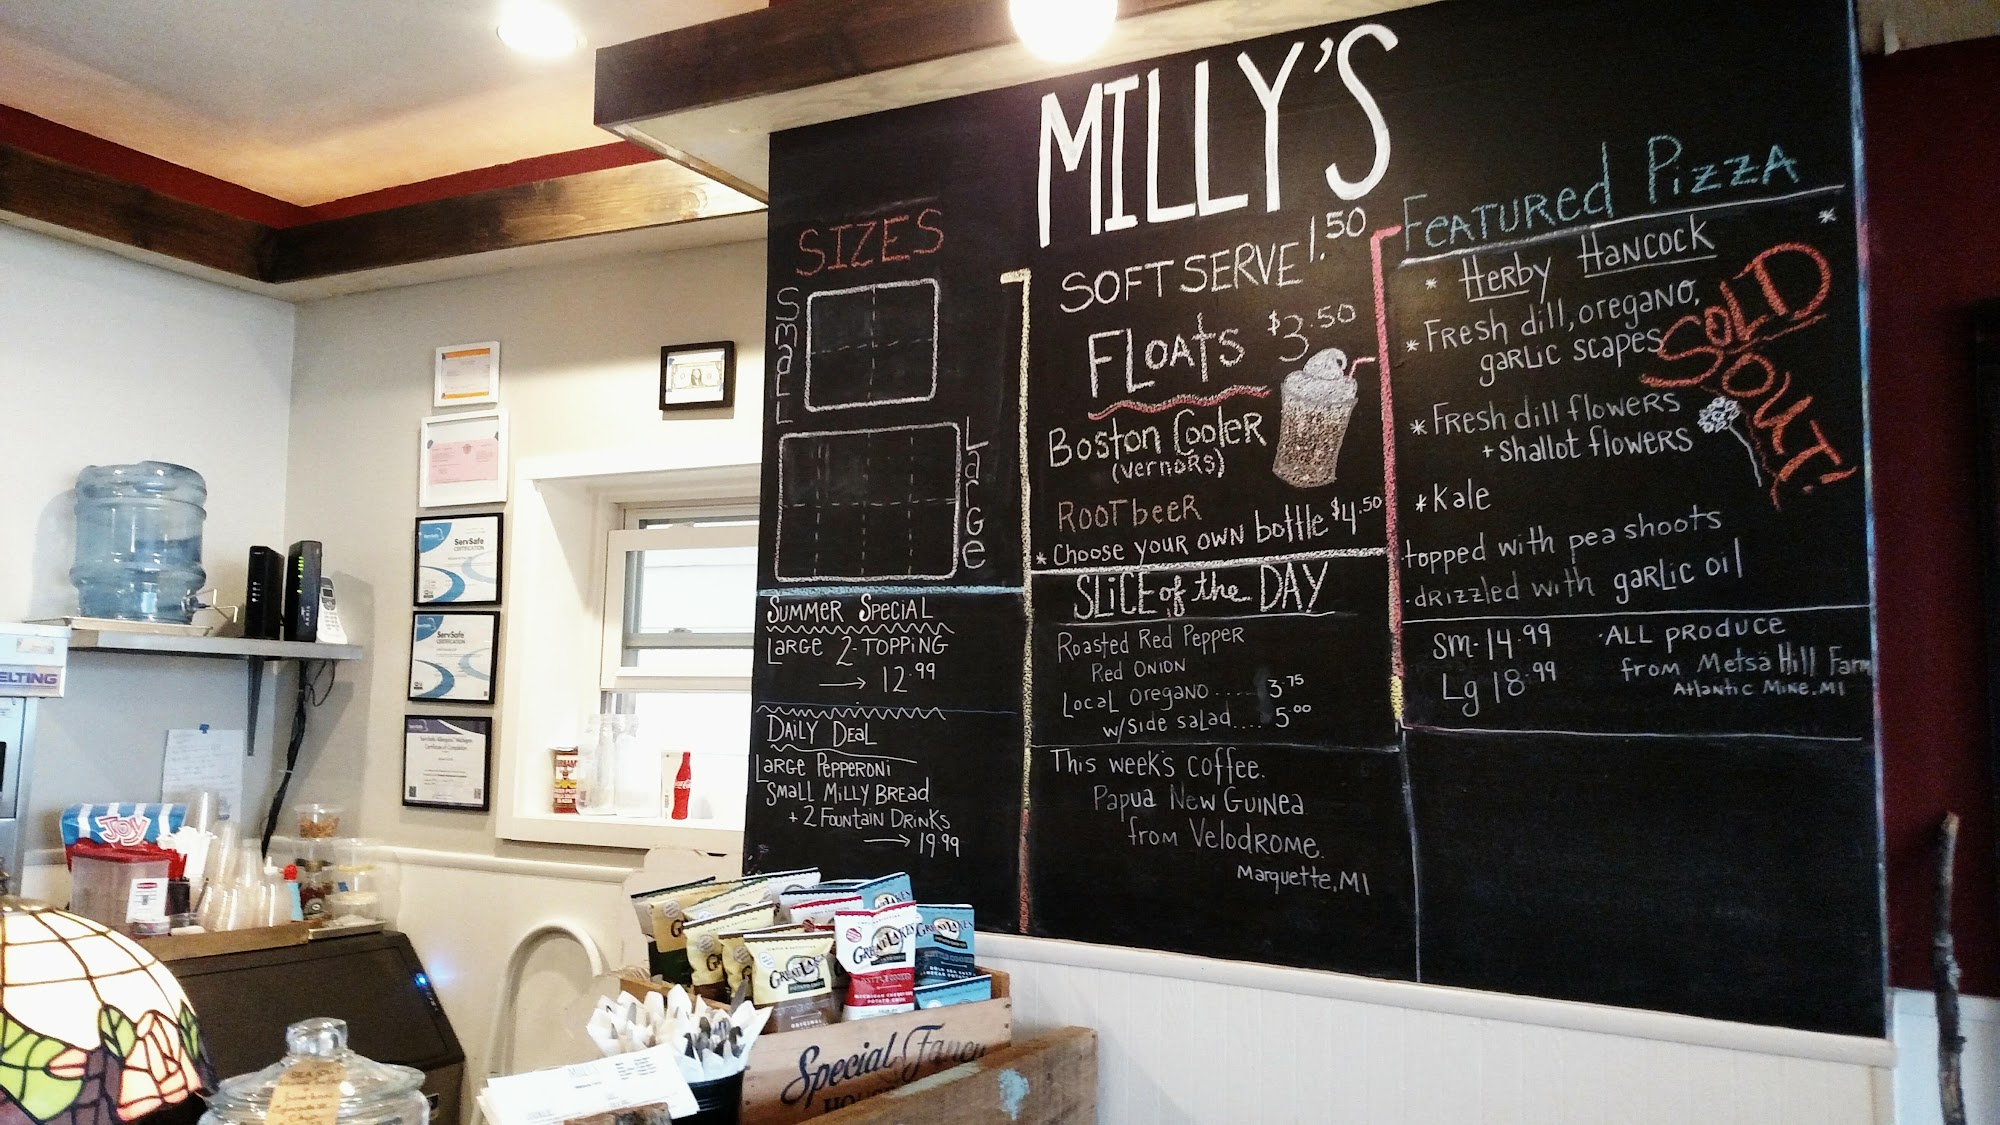 MILLY'S
SIZES
Small
Large
SUMMER SPECIAL
LARGE 2-TOPPING
→ 12.99
DAILY DEAL
LARGE PEPPERONI
SMALL MILLY BREAD
+ 2 FOUNTAIN DRINKS
→ 19.99
SOFT SERVE 1.50
FLOATS $3.50
BOSTON COOLER
(VERNORS)
ROOTbeeR
* CHOOSE YOUR OWN bottle $4.50
SLICE of the DAY
Roasted Red Pepper
Red ONION
Local Oregano ..... 3.75
w/side salad.... 5.00
This week's coffee.
Papua New Guinea
from Velodrome.
Marquette, MI
Featured Pizza
* Herby Hancock *
* Fresh dill, oregano,
garlic scapes
SOLD
OUT!
* Fresh dill flowers
+ shallot flowers
* Kale
·topped with pea shoots
·drizzled with garlic oil
Sm. 14.99
Lg 18.99
·ALL produce
from Metsa Hill Farm
Atlantic Mine, MI
ServSafe
CERTIFICATION
ServSafe
CERTIFICATION
Certificate of Completion
ELTING
JOY
GREAT LAKES
POTATO CHIPS
ORIGINAL
GREAT LAKES
GREAT LAKES
Special Fancy
MILLY'S